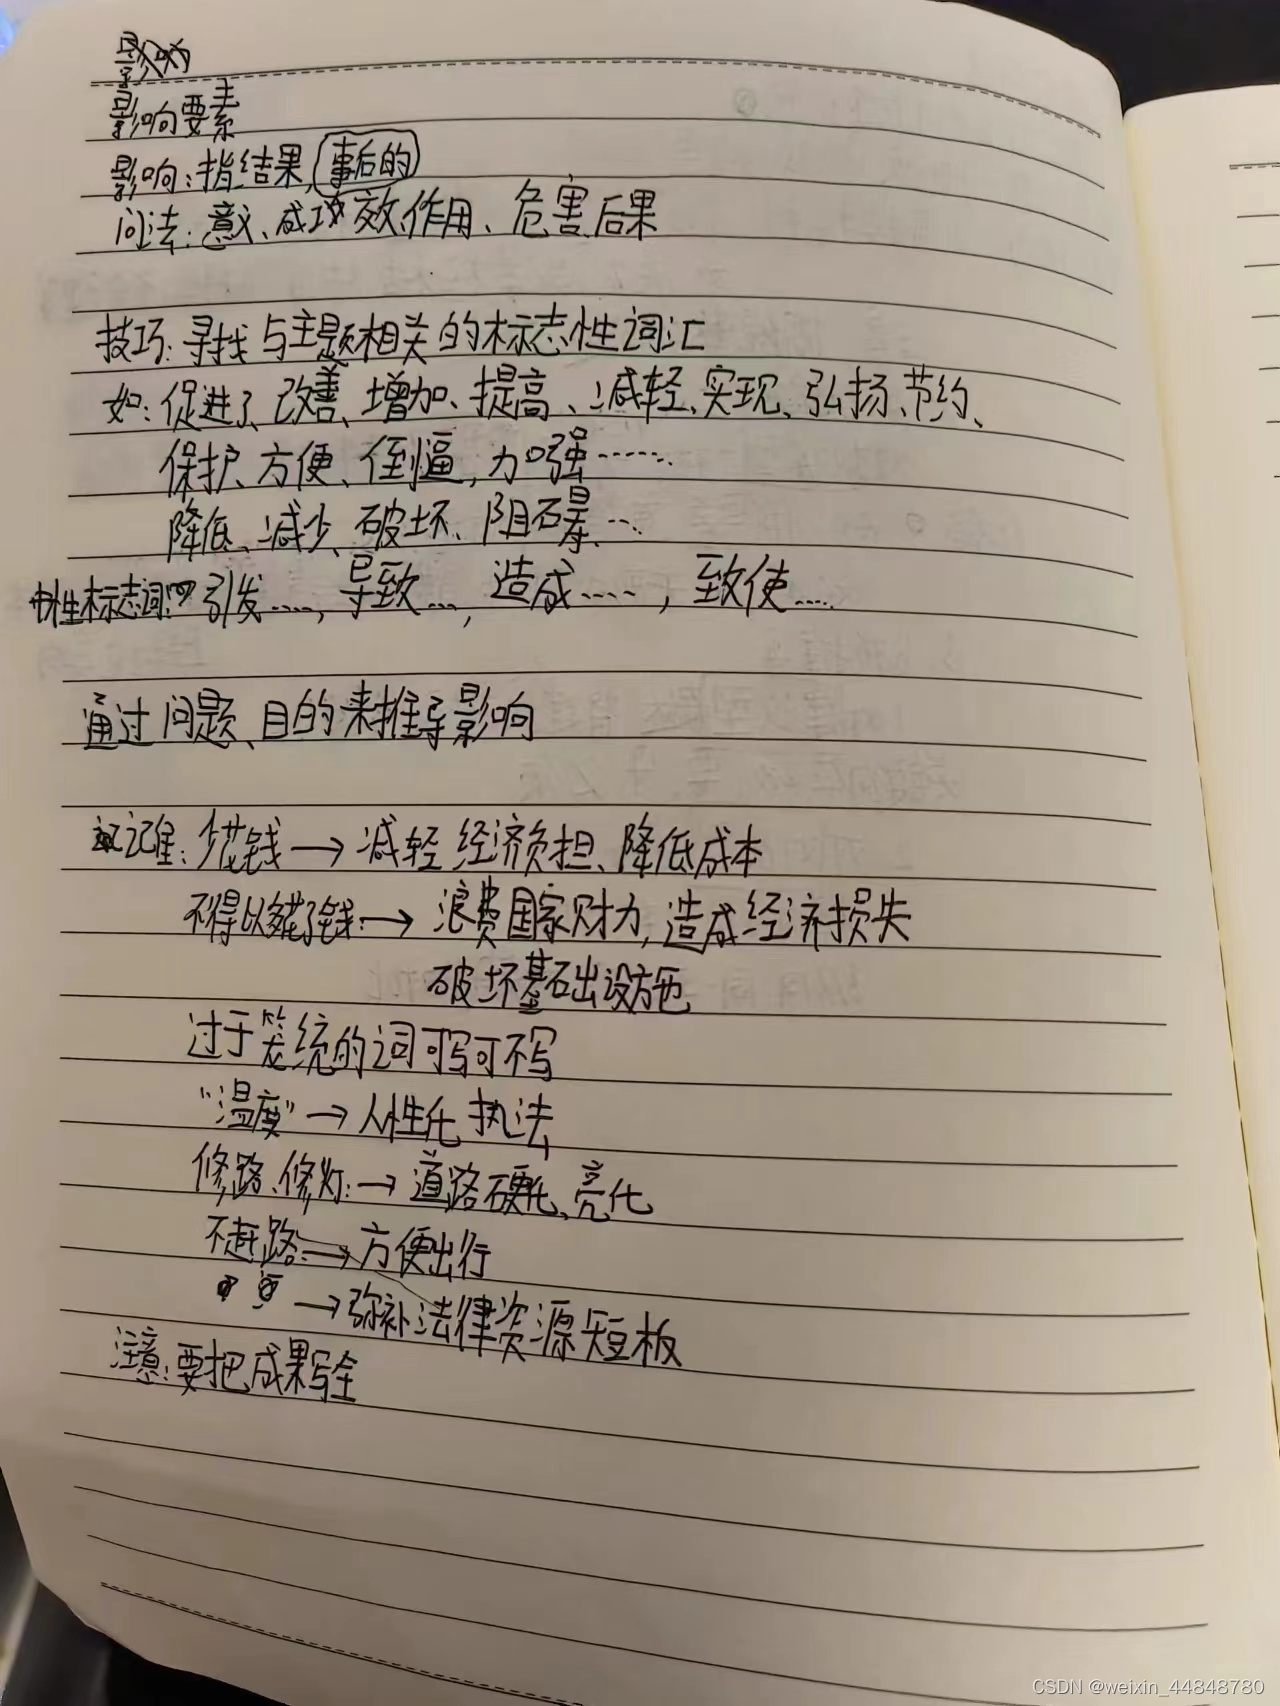 影响
影响要素
影响:指结果,事后的
问法:意义、成功、效、作用、危害后果
技巧:寻找与主题相关的标志性词汇
如:促进了、改善、增加、提高、减轻、实现、弘扬、节约、
保护、方便、倒逼,加强……
降低、减少、破坏、阻碍…
性标志词:引发……,导致…,造成……,致使……
通过问题、目的来推导影响
记住:少花钱→减轻经济负担、降低成本
不得以多花了钱:→浪费国家财力,造成经济损失
破坏基础设施
过于笼统的词可写可不写
“温度”→人性化执法
修路、修灯:→道路硬化、亮化
不赶路:→方便出行
→弥补法律资源短板
注意:要把成果写全
CSDN @weixin_44848780